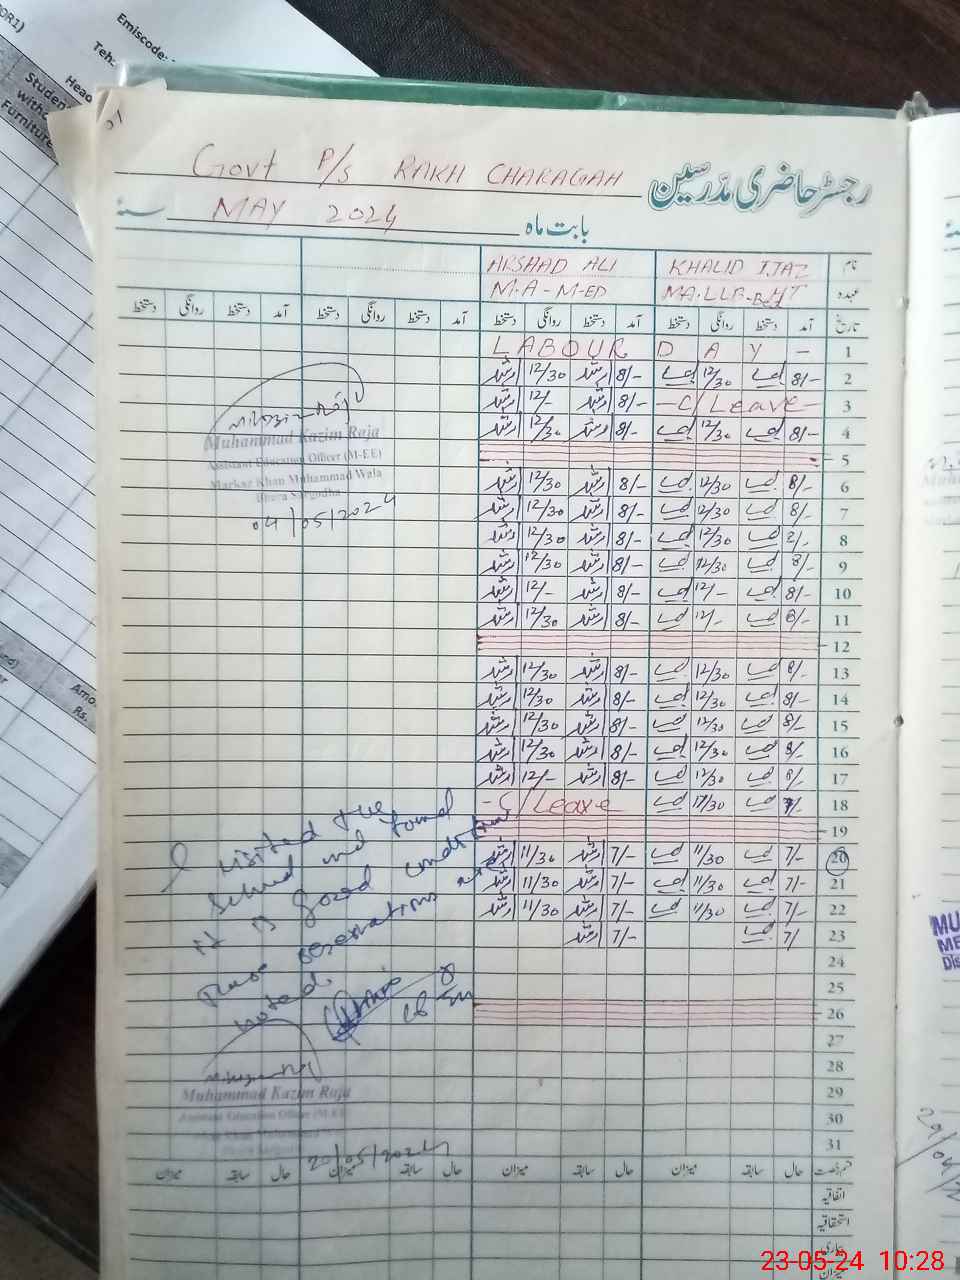 Emiscode:
Teh:
Head
Studen
with
Furniture
Govt P/S RAKH CHARAGAH
رجسٹر حاضری مدرسین
MAY 2024 بابت ماہ
سنہ
ARSHAD ALI KHALID IJAZ نام
M.A - M-ED MA.LLB- عہدہ
دستخط روانگی دستخط آمد دستخط روانگی دستخط آمد دستخط روانگی دستخط آمد دستخط روانگی دستخط آمد تاریخ
LABOUR DAY - 1
ارشد 12/30 ارشد 8/- 12/30 8/- 2
ارشد 12/- ارشد 8/- -C/Leave- 3
ارشد 12/30 ارشد 8/- 12/30 8/- 4
5
ارشد 12/30 ارشد 8/- 12/30 8/- 6
ارشد 12/30 ارشد 8/- 12/30 8/- 7
ارشد 12/30 ارشد 8/- 12/30 8/- 8
ارشد 12/30 ارشد 8/- 12/30 8/- 9
ارشد 12/- ارشد 8/- 12/- 8/- 10
ارشد 12/30 ارشد 8/- 12/- 8/- 11
12
ارشد 12/30 ارشد 8/- 12/30 8/- 13
ارشد 12/30 ارشد 8/- 12/30 8/- 14
ارشد 12/30 ارشد 8/- 12/30 8/- 15
ارشد 12/30 ارشد 8/- 12/30 8/- 16
ارشد 12/- ارشد 8/- 12/30 8/- 17
-C/Leave 11/30 7/- 18
19
ارشد 11/30 ارشد 7/- 11/30 7/- 20
ارشد 11/30 ارشد 7/- 11/30 7/- 21
ارشد 11/30 ارشد 7/- 11/30 7/- 22
ارشد 7/- 7/ 23
24
25
26
27
28
29
30
31
Muhammad Kazim Raja
Assistant Education Officer (M-EE)
Markaz Khan Muhammad Wala
Bhera Sargodha
04/05/2024
I visited the
School and found
it is good condition
noted.
Muhammad Kazim Raja
Assistant Education Officer (M-EE)
20/05/2024
میزان سابقہ حال میزان سابقہ حال میزان سابقہ حال میزان سابقہ حال قسم رخصت
اتفاقیہ
استحقاقیہ
بیماری
میزان
Amo
Rs.
29/04/2
23-05-24 10:28